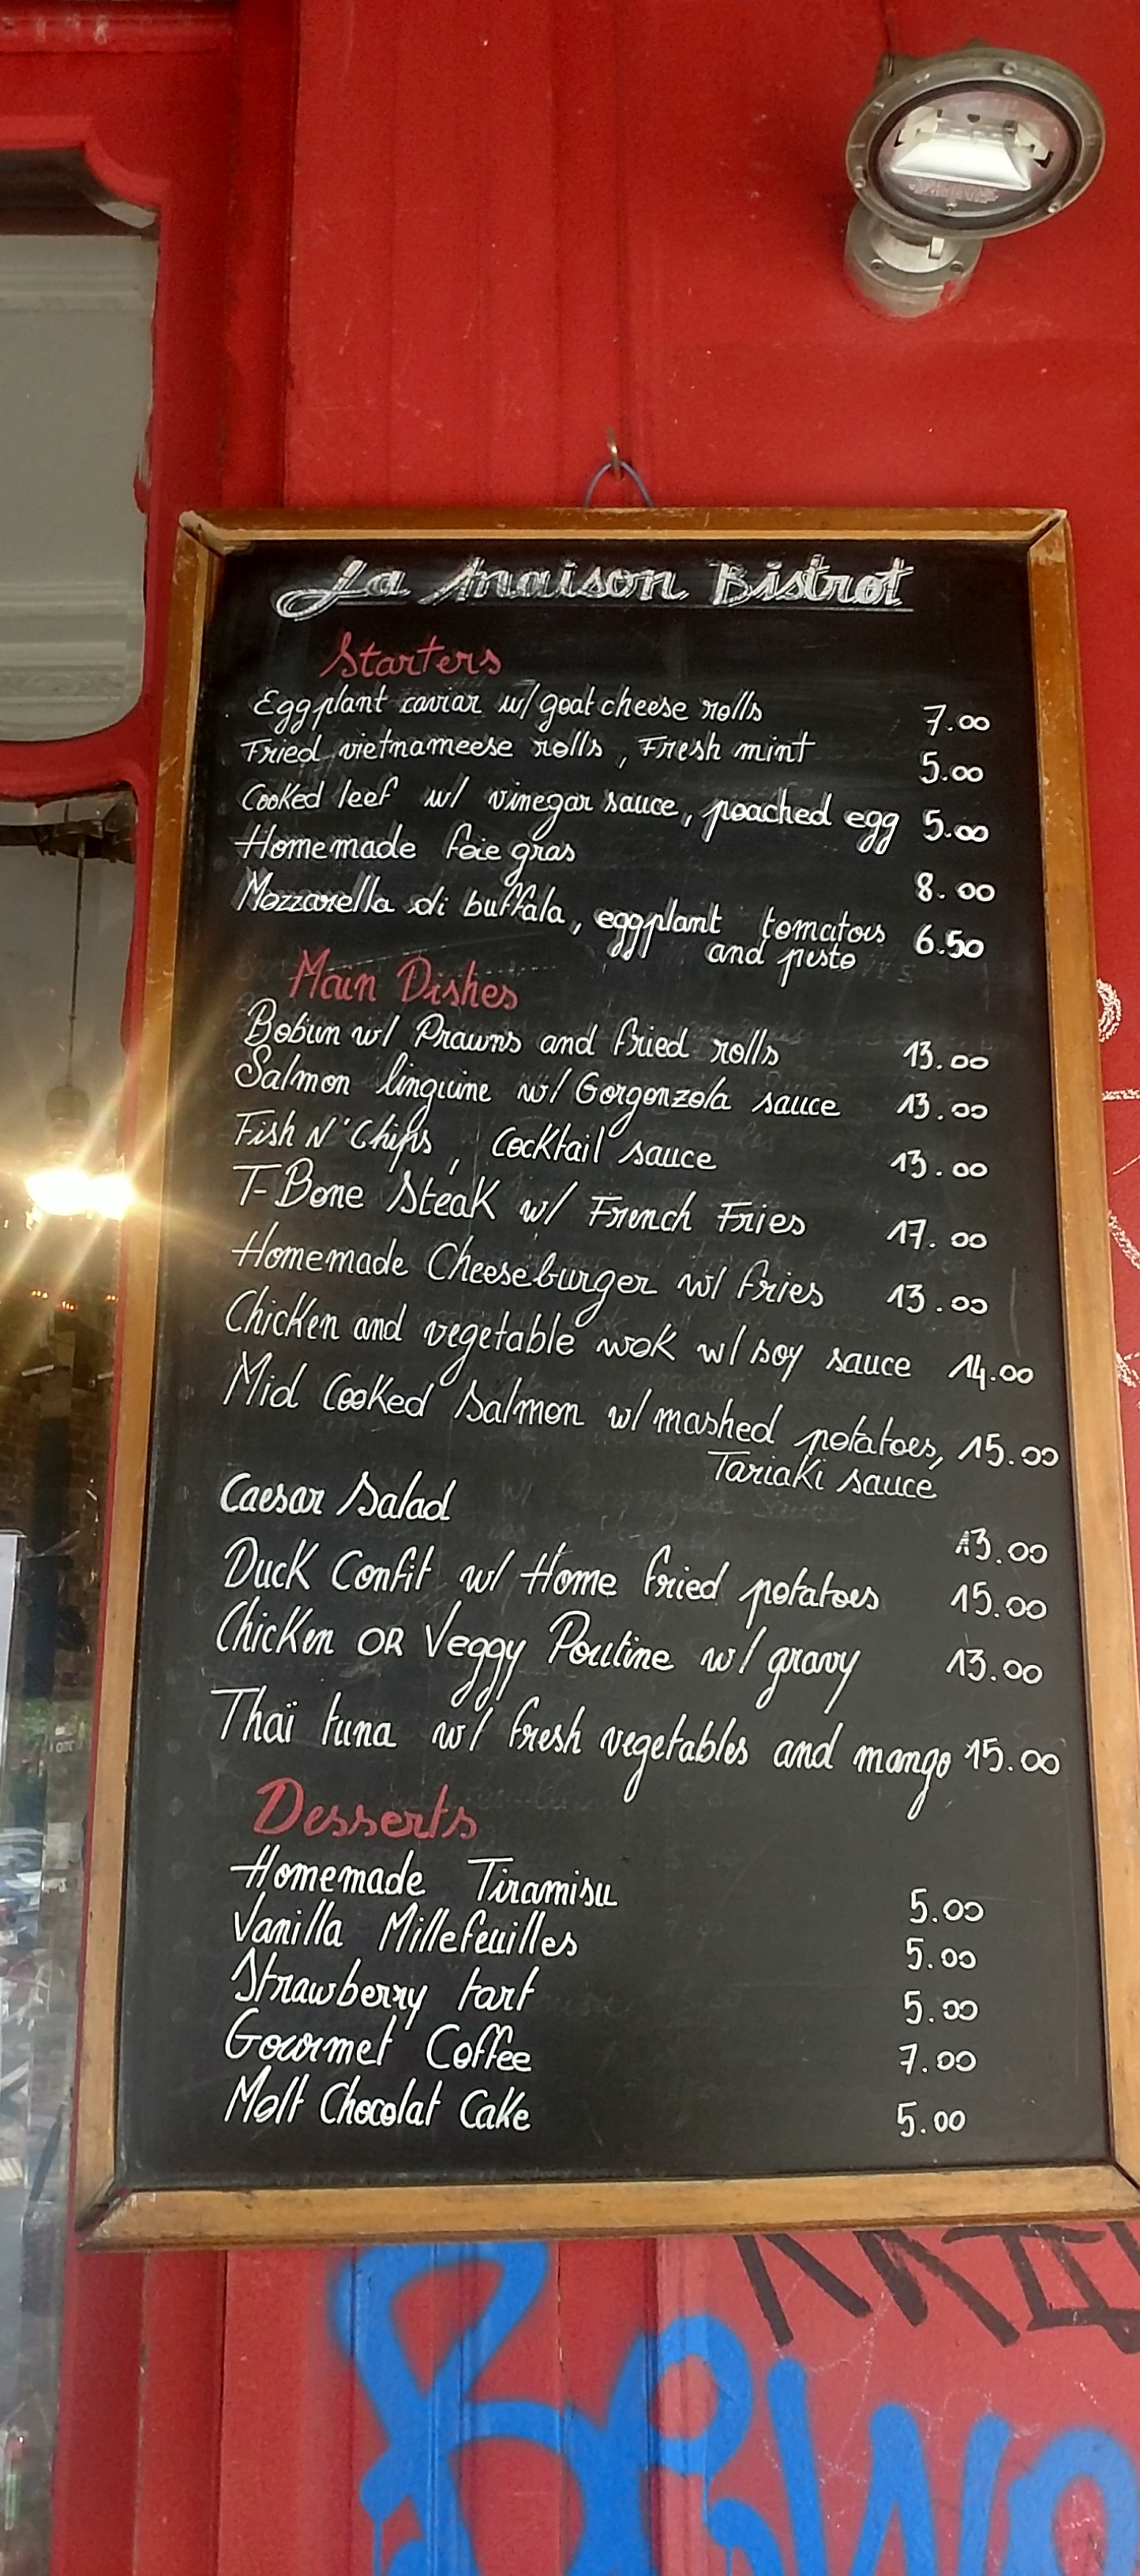 La maison Bistrot
Starters
Eggplant caviar w/ goat cheese rolls 7.00
Fried vietnameese rolls, Fresh mint 5.00
Cooked leef w/ vinegar sauce, poached egg 5.00
Homemade foie gras 8.00
Mozzarella di buffala, eggplant tomatoes 6.50
and pesto
Main Dishes
Bobun w/ Prawns and fried rolls 13.00
Salmon linguine w/ Gorgonzola sauce 13.00
Fish N' Chips, Cocktail sauce 13.00
T-Bone Steak w/ French Fries 17.00
Homemade Cheeseburger w/ fries 13.00
Chicken and vegetable wok w/ soy sauce 14.00
Mid Cooked Salmon w/ mashed potatoes, 15.00
Tariaki sauce
Caesar Salad 13.00
Duck Confit w/ Home fried potatoes 15.00
Chicken OR Veggy Poutine w/ gravy 13.00
Thaï tuna w/ fresh vegetables and mango 15.00
Desserts
Homemade Tiramisu 5.00
Vanilla Millefeuilles 5.00
Strawberry tart 5.00
Gourmet Coffee 7.00
Molt Chocolat Cake 5.00